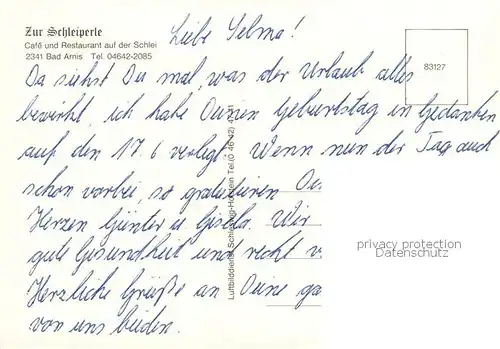 Zur Schleiperle
Café und Restaurant auf der Schlei
2341 Bad Arnis Tel. 04642-2085
83127
Liebe Selma!
Da siehst Du mal, was der Urlaub alles
bewirkt, ich habe Deinen Geburtstag in Gedanken
auf den 17.6 verlegt. Wenn nun der Tag auch
schon vorbei, so gratulieren
Herzen Günter u. Gisela. Wir
gute Gesundheit und recht v
Herzliche Grüße an Deine ga
von uns beiden.
Luftbilddienst Schleswig-Holstein Tel.
privacy protection
Datenschutz